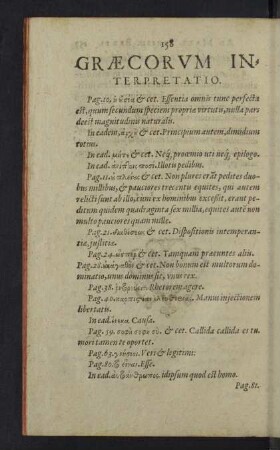 158
GRÆCORVM IN-
TERPRETATIO.
Pag. 12. ἡ οὐσία & cet. Essentia omnis tunc perfecta
est, quum secundum speciem propriæ virtutis, nulla pars
deest magnitudinis naturalis.
In eadem, ἀρχὴ & cet. Principium autem, dimidium
totius.
In ead. μήτε & cet. Neq́; prooemio uti neq́; epilogo.
In ead. ἀνίπτοις ποσί. Illotis pedibus.
Pag. & cet. Non plures erāt pedites duo-
bus millibus, & pauciores trecentis equites, qui autem
relicti sunt ab illo, eximiæ hominibus excessit, erant pe-
ditum quidem quadraginta sex millia, equites autē non
multo pauciores quam mille.
Pag. 21. & cet. Dispositionis intemperan-
tia, justitia.
Pag. 24. & cet. Tamquam præeuntes aliis.
Pag. 28. οὐκ ἀγαθὸν & cet. Non bonum est multorum do-
minatio, unus dominus sit, unus rex.
Pag. 38. Rhetorem agere.
Pag. 40. Manus injectionem
libertatis.
In ead. ἕνεκα Causa.
Pag. 59. & cet. Callida callida es tu-
mori tamen te oportet.
Pag. 63. γνήσιοι. Veri & legitimi.
Pag. 80. εἶναι. Esse.
In ead. idipsum quod est homo.
Pag. 81.